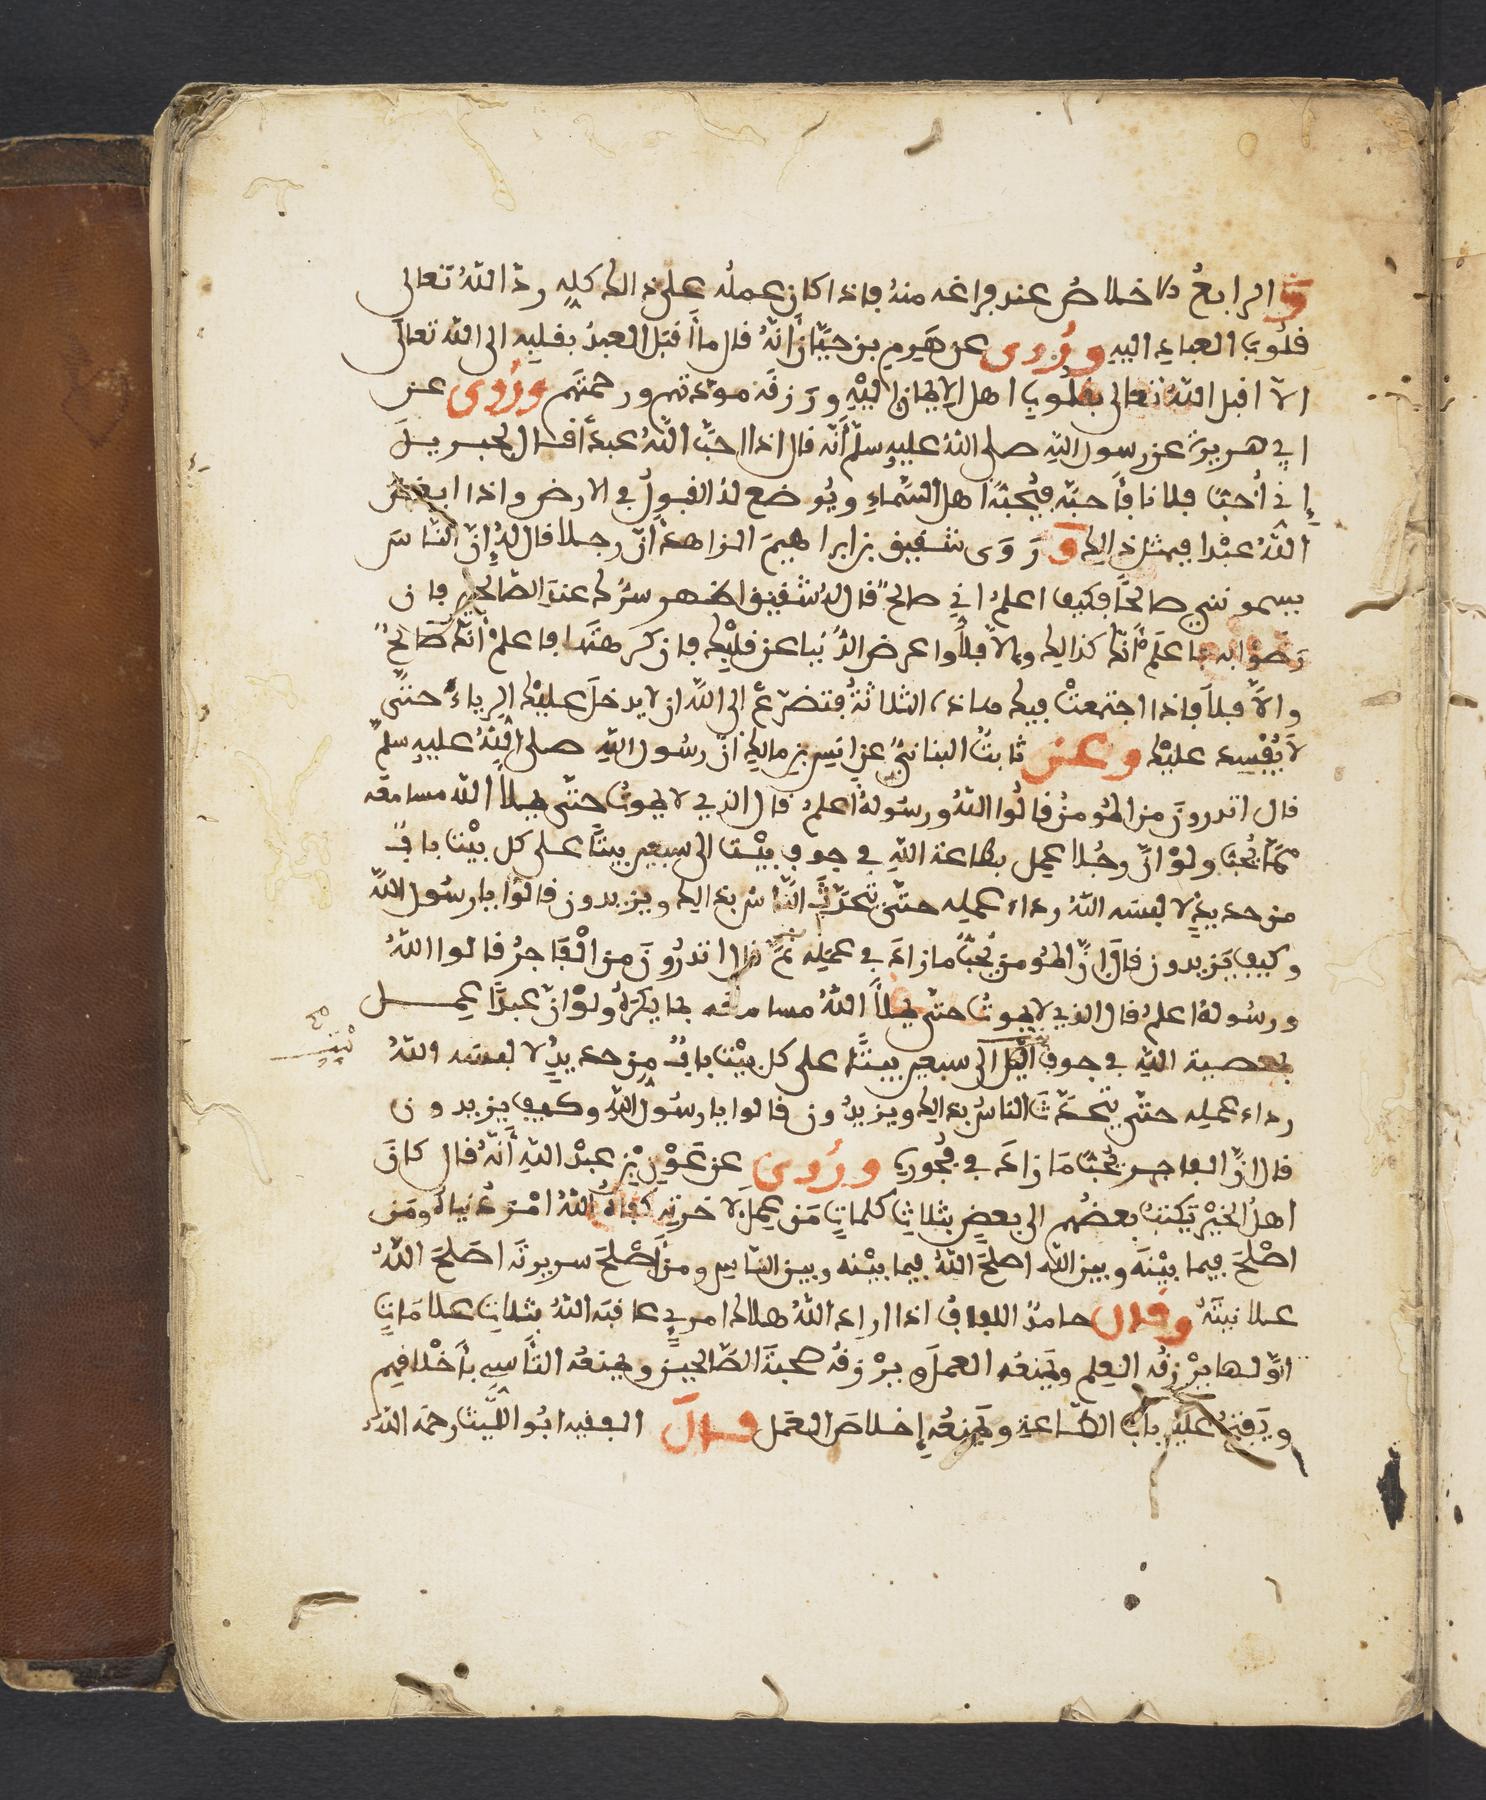 و الرابع الاخلاص عند فراغه منه فاذا كان عمله على ذالك كله ردّ الله تعالى
قلوب العباد اليه ورُوى عن هَرِم بن حيّان أنّه قال ما أقبل العبد بقلبه الى الله تعالى
الا اقبل الله تعالى بقلوب اهل الايمان اليْه ورَزقه مودّتهم ورحمتهم ورُوى عن
ابي هريرة عن رسول الله صلى الله عليه سلّم أنّه قال اذا احبّ اللّه عبدا قال لجبريل
إني أُحبّ فلانا فأحبّه فيُحبّه اهل السّماء ويُوضع لهُ القبول في الارض واذا ابغض
اللّه عبْدا فمثل ذالك و رَوَى شقيق بن ابراهيم الزاهد أنّ رجلا قال لهُ إنّ النّاس
يسمونني صالحًا فكيف اعلم اني صالح قال له شقيق اظهر سرّك عند الصّالحين فان
رَضوْا به فاعلَم أنّك كذالك والّا فلا واعرض الدّنيا عن قلبك فان كرهتَها فاعلمْ أنّك صَالح
والاَّ فلا فاذا اجتمعتْ فيك هذه الثلاثة فتضرّع الى اللّه ان لا يدخل عليْك الرياء حتّى
لا يُفْسِد عليْك وعن ثابتُ البنانيّ عن انس بن مالك انّ رسُول اللّه صلى اللّه عليه سلم
قال اتدرون من المُومنُ قالُوا اللّهُ ورسُولهُ اعلم قال الذي لا يموتُ حتّى يملأ اللّه مسامعه
ممّا يُحبّ ولوْ انّ رجُلا عمل بطاعة اللّه في جوف بيْت الى سبعين بيتًا على كل بيْت بابٌ
من حديدٍ لا لبسه اللّهُ رداء عمله حتّى يتحدّث النّاسُ بذالك ويزيدون قالوا يا رسُول اللّه
وكيف يَزيدون قال انّ المُومن يُحبّ ما زادَ في عمَله ثمّ قال اتدرُون من الْفاجرُ قالوا اللّهُ
ورسُولهُ اعلم قال الذي لا يموتُ حتّى يملأ اللّهُ مسامعه مما يكرَهُ ولوْ انّ عبدًا عمل
بمعصية اللّه في جوف اليل الى سبعين بيتًا على كل بيْت بابٌ من حديدٍ لا لبسه اللّهُ
بَيْتٍ صح
رداء عمله حتّى يتحدّثَ الناسُ بذالك ويزيدُون قالوا يا رسُول اللّه وكيف يزيدون
قال انّ الفاجر يُحبّ مَا زادَ في فُجوره ورُوىَ عن عَوْنِ بْنِ عبْد اللّه أنّه قال كان
اهلُ الخيْر يَكتبُ بعضُهم الى بعضٍ بثلاثِ كلماتٍ مَن عمل لاخرته كفاهُ اللّهُ امْرَ دُنياهُ ومَن
اصْلحَ فيما بيْنَه وبين اللّه اصلحَ اللّهُ فيما بيْنه وبين النّاس ومن أصْلحَ سريرته اصَلحَ اللّهُ
علانيتَهُ وقال حامدٌ اللفاف اذا اراد اللّهُ هلاك امرئ عاقبه اللّهُ بثلاث علامَاتٍ
اوّلها يرْزقُه العِلم ويَمنعُه العملَ ويرْزقهُ صحبةَ الصّالحين ويمنعُه التأسي بأخْلاقهم
ويَفتح عليْه بابَ الطّاعة ويمنعُه إخلاصَ العَمل قالَ الفقيه ابُو اللّيث رحمه اللّه